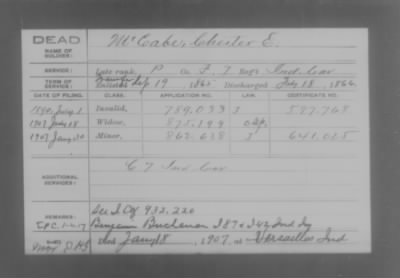 DEAD
NAME OF SOLDIER:
McCabe, Chester E.
SERVICE:
Late rank, P Co. F, 7 Reg't Ind. Cav
TERM OF SERVICE:
Enlisted Sep 19, 1863 Discharged July 18, 1864
DATE OF FILING. CLASS. APPLICATION NO. LAW. CERTIFICATE NO.
1890, July Invalid, 789.033 587.768
1907, 18 Widow, 875.199
1907, Jany 30 Minor, 862.638 641.025
ADDITIONAL SERVICES:
C 7 Ind Cav
REMARKS:
See I Cf 932.220
Benjamin Buchanan I 87 & I 42 Ind Inf
died Jany 18, 1907, at Versailles Ind